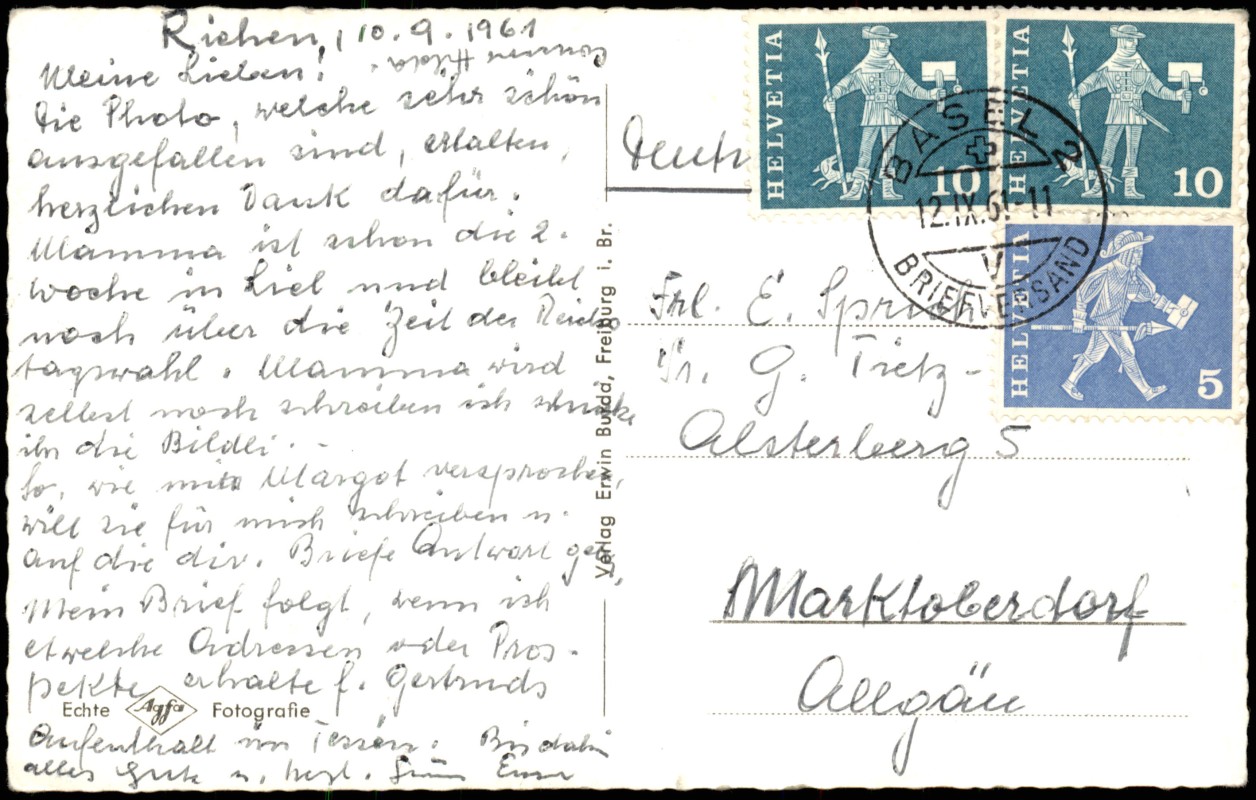 Riehen, 10.9.1961
Meine Lieben!
die Photo, welche sehr schön
ausgefallen sind, erhalten,
herzlichen Dank dafür.
Mamma ist schon die 2.
Woche in Kiel und bleibt
noch über die Zeit der Reichs
tagswahl. Mamma wird
selbst noch schreiben ich schicke
ihr die Bildli.
So, wie mir Margot versprochen,
will sie für mich schreiben u.
auf die div. Briefe Antwort geb.
Mein Brief folgt, wenn ich
etwelche Adressen oder Pros-
pekte erhalte f. Gertruds
Aufenthalt im Tessin. Bis dahin
alles Gute u. herzl. Euer
Hilda
Echte Agfa Fotografie
Verlag Erwin Burda, Freiburg i. Br.
HELVETIA 10
HELVETIA 10
HELVETIA 5
BASEL 2
12.IX.61-11
V
BRIEFVERSAND
Frl. E.
G. Tietz-
Alsterberg 5
Marktoberdorf
Allgäu